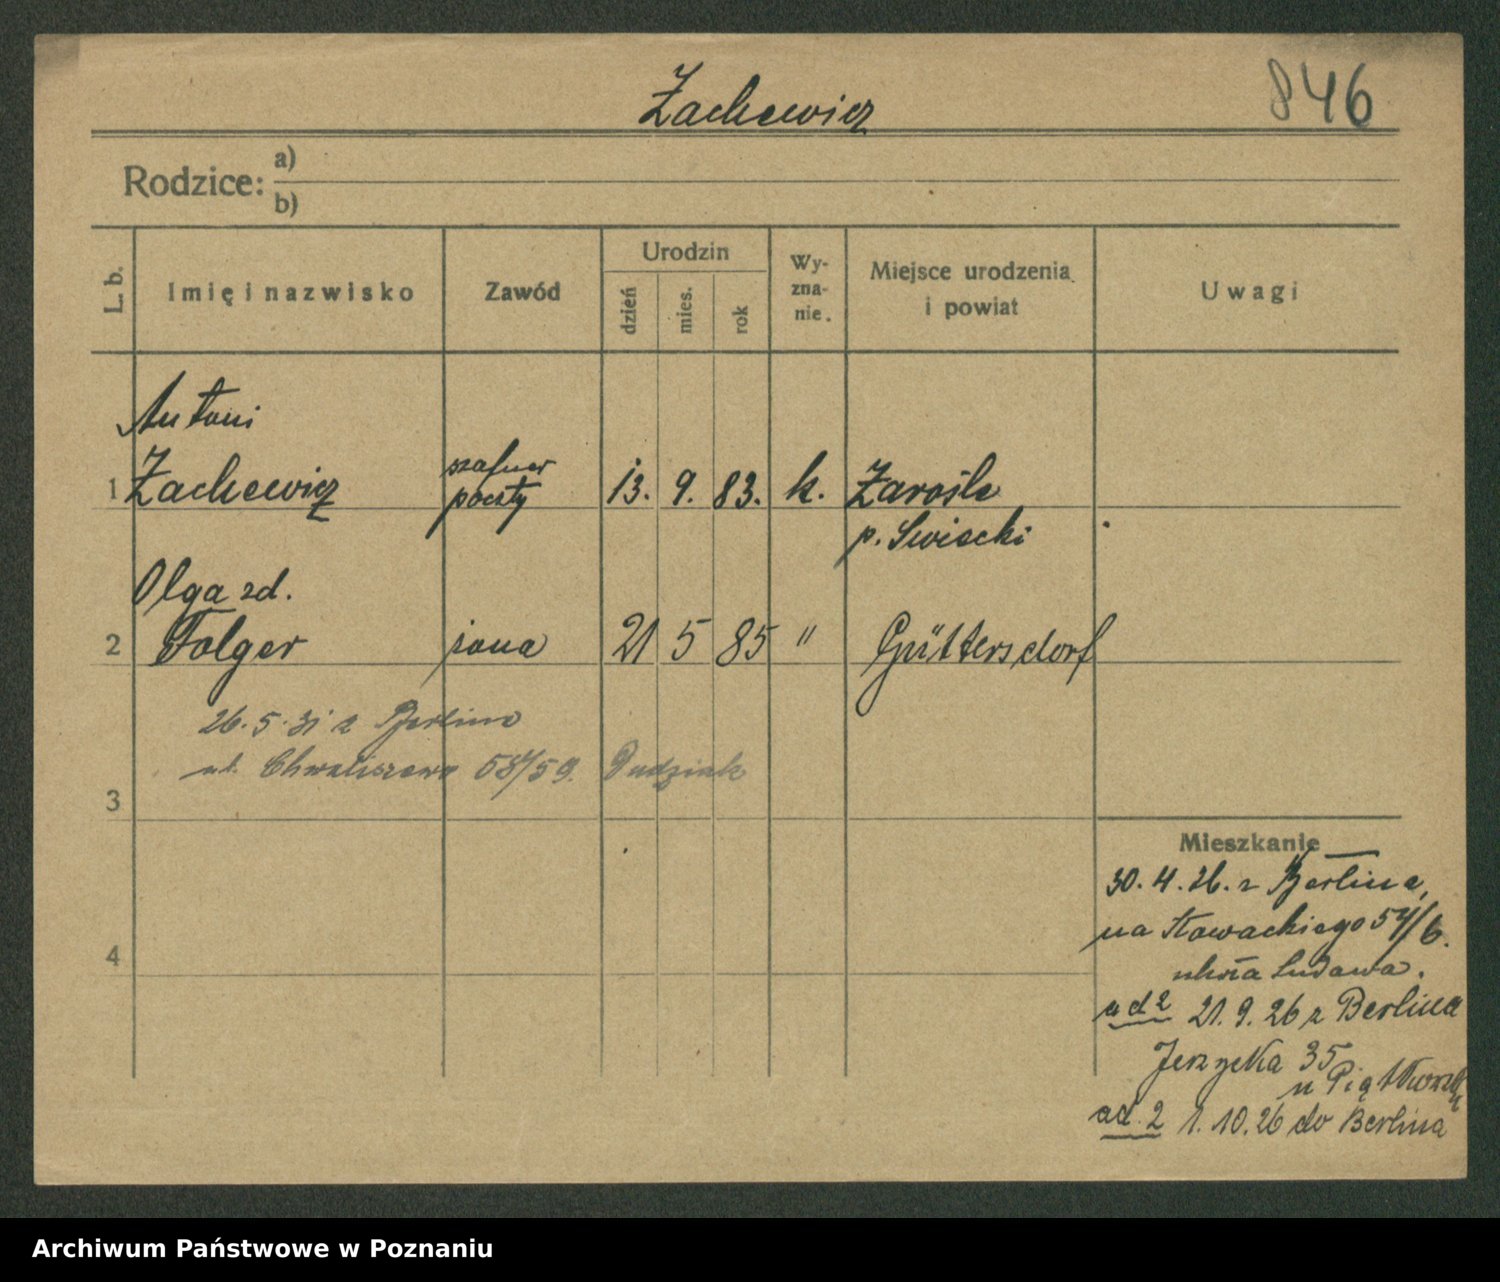 Zachewicz
846
Rodzice: a)
b)
L. b.
Imię i nazwisko
Zawód
Urodzin
dzień
mies.
rok
Wy-
zna-
nie.
Miejsce urodzenia
i powiat
Uwagi
Antoni
1 Zachewicz poczty 13. 9. 83. k. Zarośle
p. Swiecki
Olga zd.
2 Folger żona 21 5 85 " Güttersdorf
26. 5. 31 z Berlina
ul. Chwaliszewo 58/59. Dudziak
3
Mieszkanie
30. 4. 26. z Berlina,
na Słowackiego
4
ad 2 21. 9. 26 z Berlina
Jerzycka 35
u
ad. 2 1. 10. 26 do Berlina
Archiwum Państwowe w Poznaniu